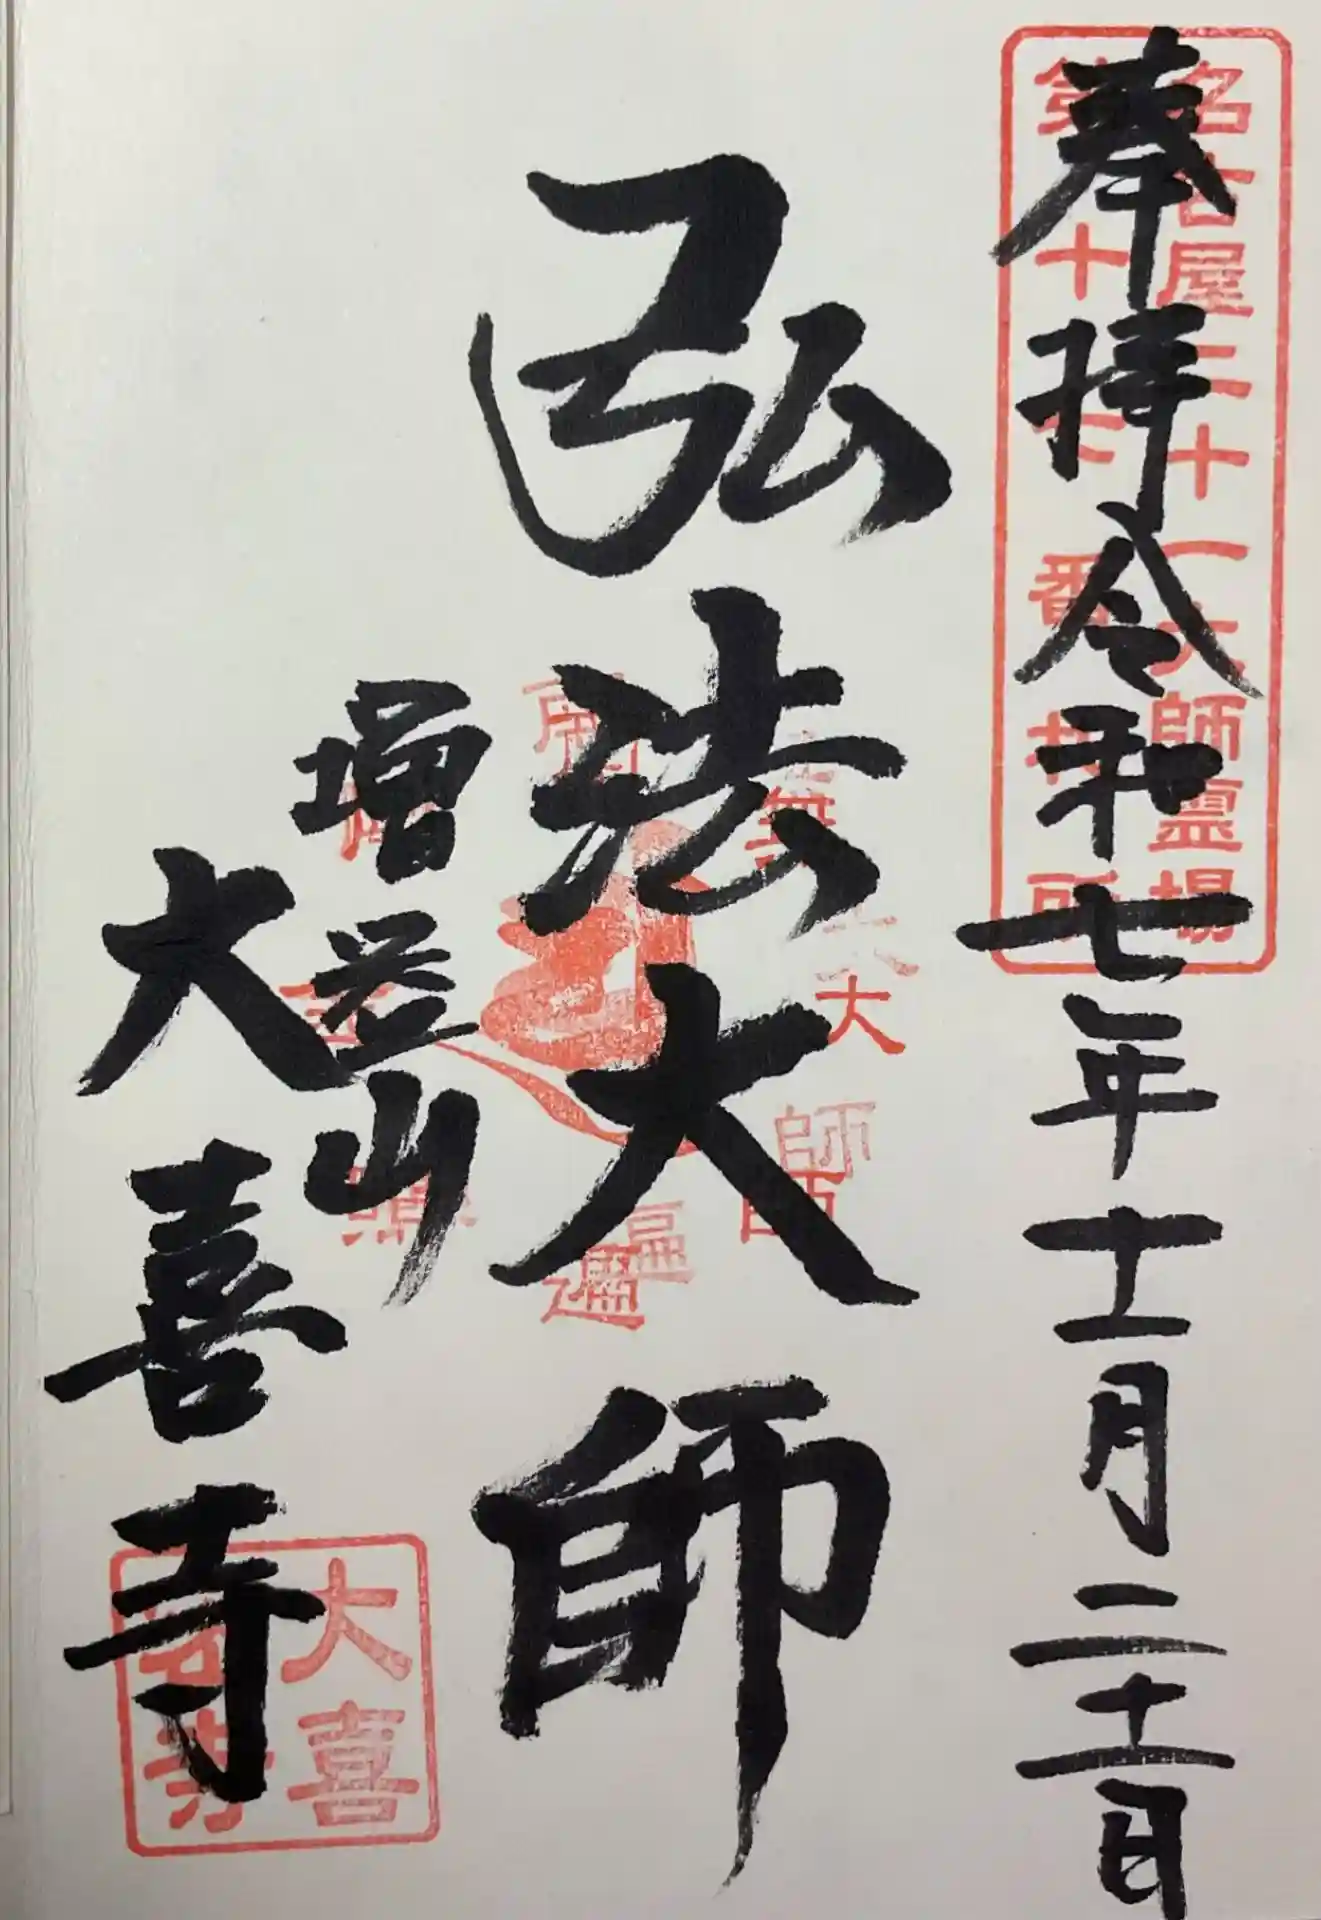 奉拝 令和七年十一月二十一日
名古屋二十一大師霊場
第十七番札所
弘法大師
南無大師遍
増益山
大喜寺
大喜